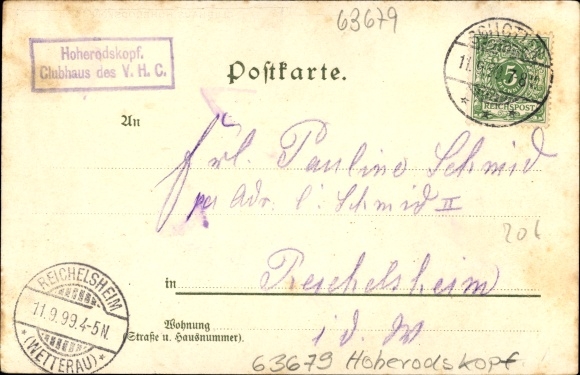 63679
Hoherodskopf.
Clubhaus des V. H. C.
Postkarte.
SCHOTTEN
11.
7-8
5
REICHSPOST
An
Frl. Pauline Schmid
per Adr. C. Schmid II
206
in Reichelsheim
i. d. W
Wohnung
(Straße u. Hausnummer).
REICHELSHEIM
11.9.99.4-5N.
(WETTERAU)
63679 Hoherodskopf